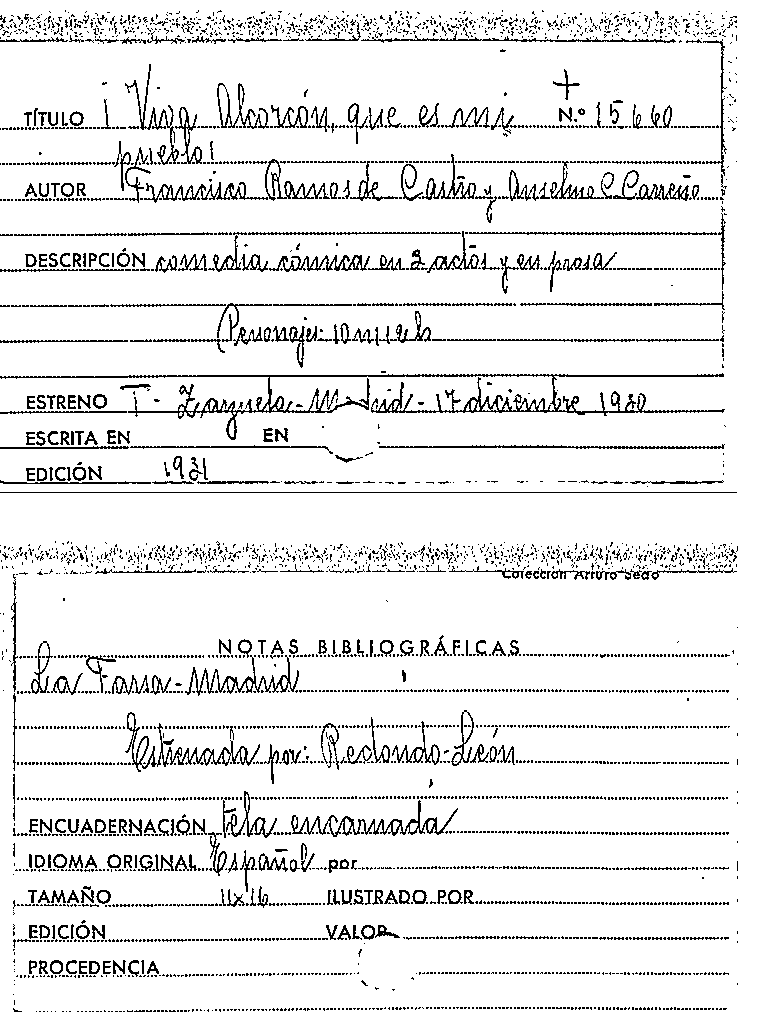 TÍTULO ¡Viva Alcorcón, que es mi N.º 15660
pueblo!
AUTOR Francisco Ramos de Castro y Anselmo C. Carreño
DESCRIPCIÓN comedia cómica en 3 actos y en prosa
(Personajes: 10 m 12 h
ESTRENO T. Zarzuela-Madrid-17 diciembre 1930
ESCRITA EN EN
EDICIÓN 1931
Colección Arturo Sedó
NOTAS BIBLIOGRÁFICAS
La Farsa-Madrid
Estrenada por: Redondo-León
ENCUADERNACIÓN tela encarnada
IDIOMA ORIGINAL Español por
TAMAÑO 11x16 ILUSTRADO POR
EDICIÓN VALOR
PROCEDENCIA